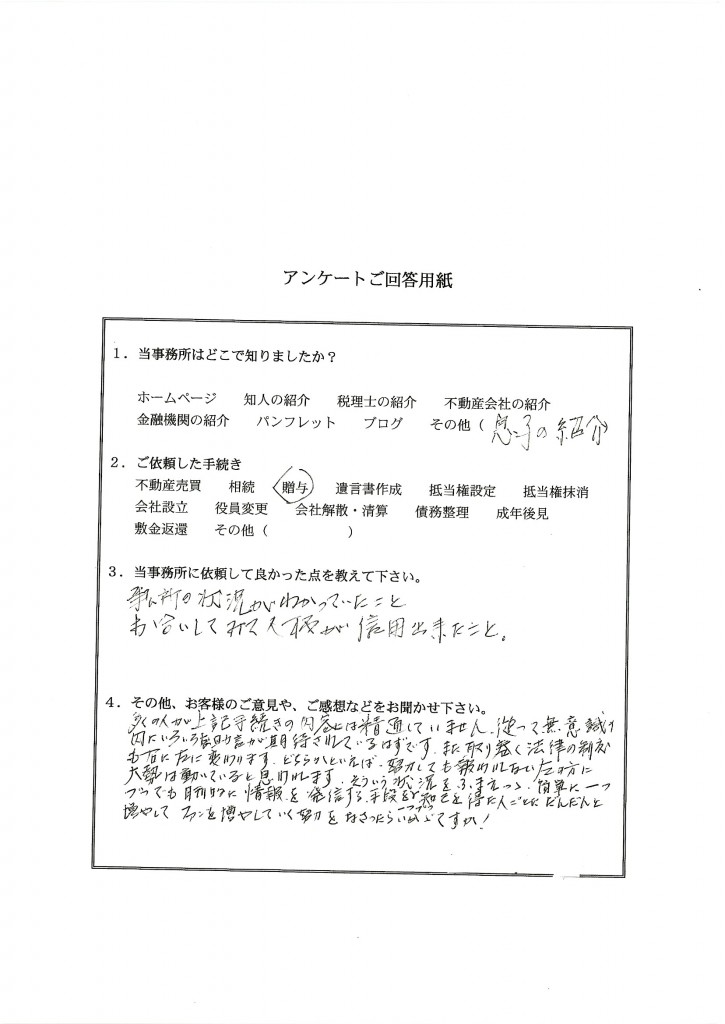 アンケートご回答用紙
1．当事務所はどこで知りましたか？
ホームページ　知人の紹介　税理士の紹介　不動産会社の紹介
金融機関の紹介　パンフレット　ブログ　その他（息子の紹介）
2．ご依頼した手続き
不動産売買　相続　贈与　遺言書作成　抵当権設定　抵当権抹消
会社設立　役員変更　会社解散・清算　債務整理　成年後見
敷金返還　その他（　　　　　）
3．当事務所に依頼して良かった点を教えて下さい。
事務所の状況がわかっていたこと
お会いしてみて人柄が信用出来たこと。
4．その他、お客様のご意見や、ご感想などをお聞かせ下さい。
多くの人が上記手続きの内容には精通していません。従って無意識の
内にいろいろ助言が期待されているはずです。また取り巻く法律の制度
も右に左に変わります。どちらかといえば、努力しても報われない方の方に
大勢は動いていると思われます。そういう状況をふまえつつ、簡単に一つ
づつでも月刊的に情報を発信する手段を知己を得た人ごとにだんだんと
増やして ファンを増やしていく努力をなさったらいかがですか！